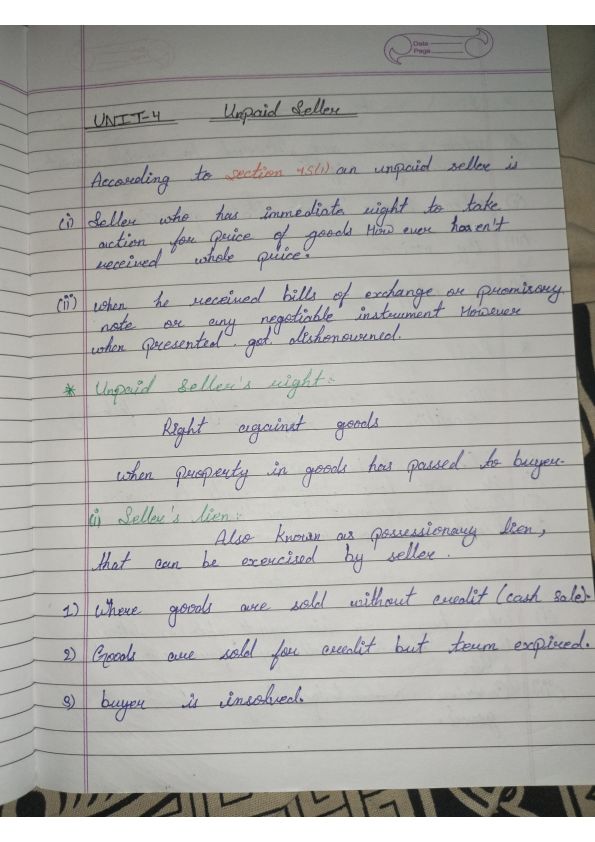 Date
Page
UNIT-4 Unpaid Seller
According to section 45(1) an unpaid seller is
(i) Seller who has immediate right to take
action for price of goods How ever haven't
received whole price.
(ii) when he received bills of exchange or promisory
note or any negotiable instrument However
when presented. got dishonourned.
* Unpaid Seller's right:-
Right against goods
when property in goods has passed to buyer-
(i) Seller's lien:-
Also known as possessionary lien,
that can be exercised by seller.
1) Where goods are sold without credit (cash sale)-
2) Goods are sold for credit but term expired.
3) buyer is insolved.